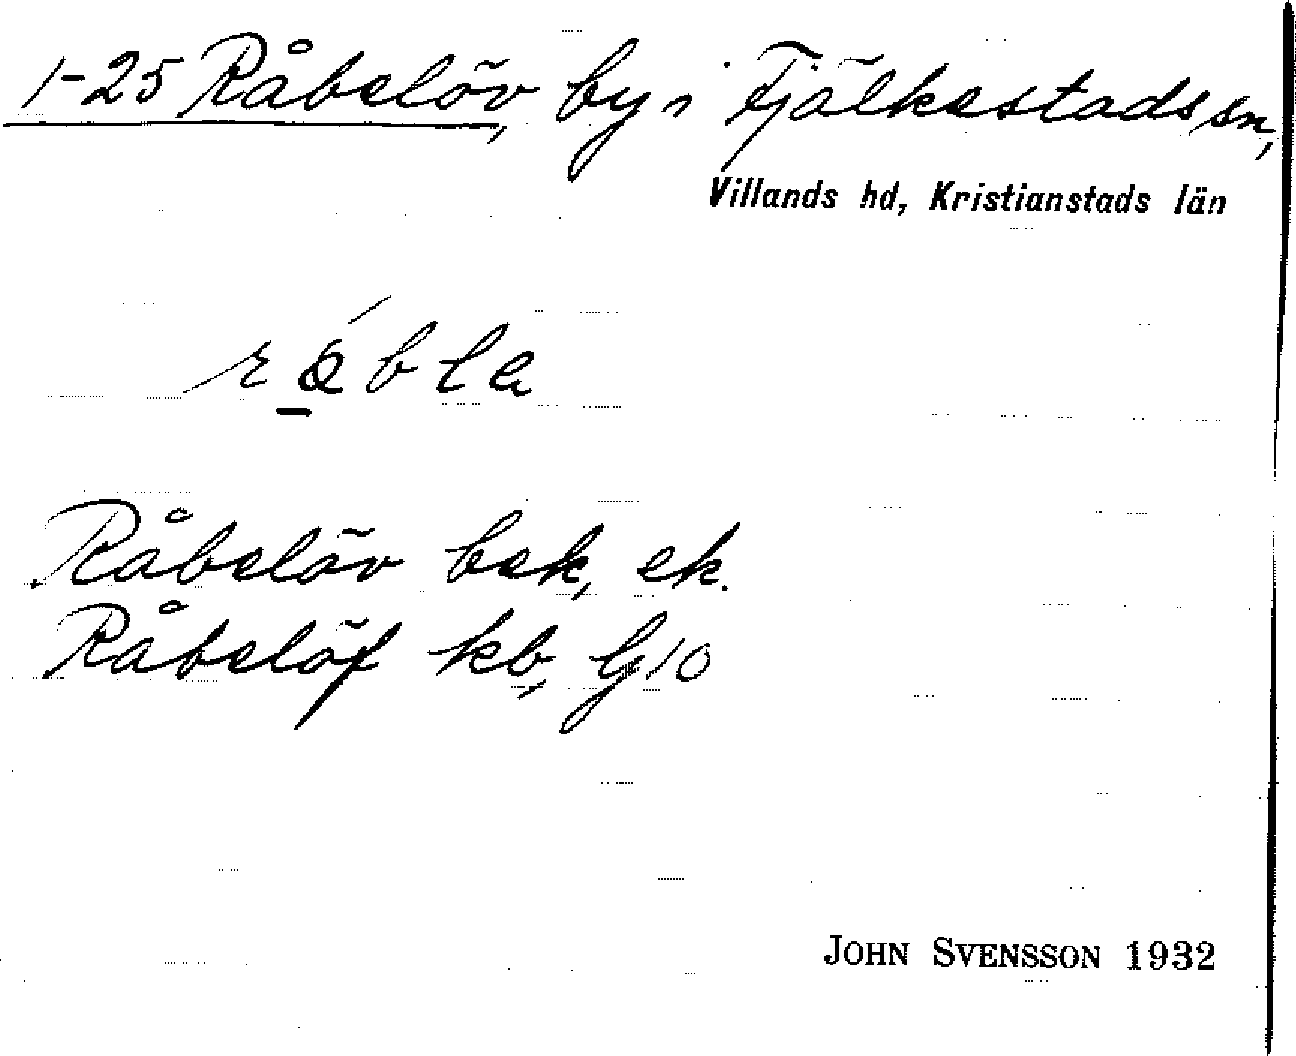 1-25 Råbelöv, by i Fjälkestads sn,
Villands hd, Kristianstads län
Råbelöv bek, ek.
Råbelöf kb, G10
JOHN SVENSSON 1932